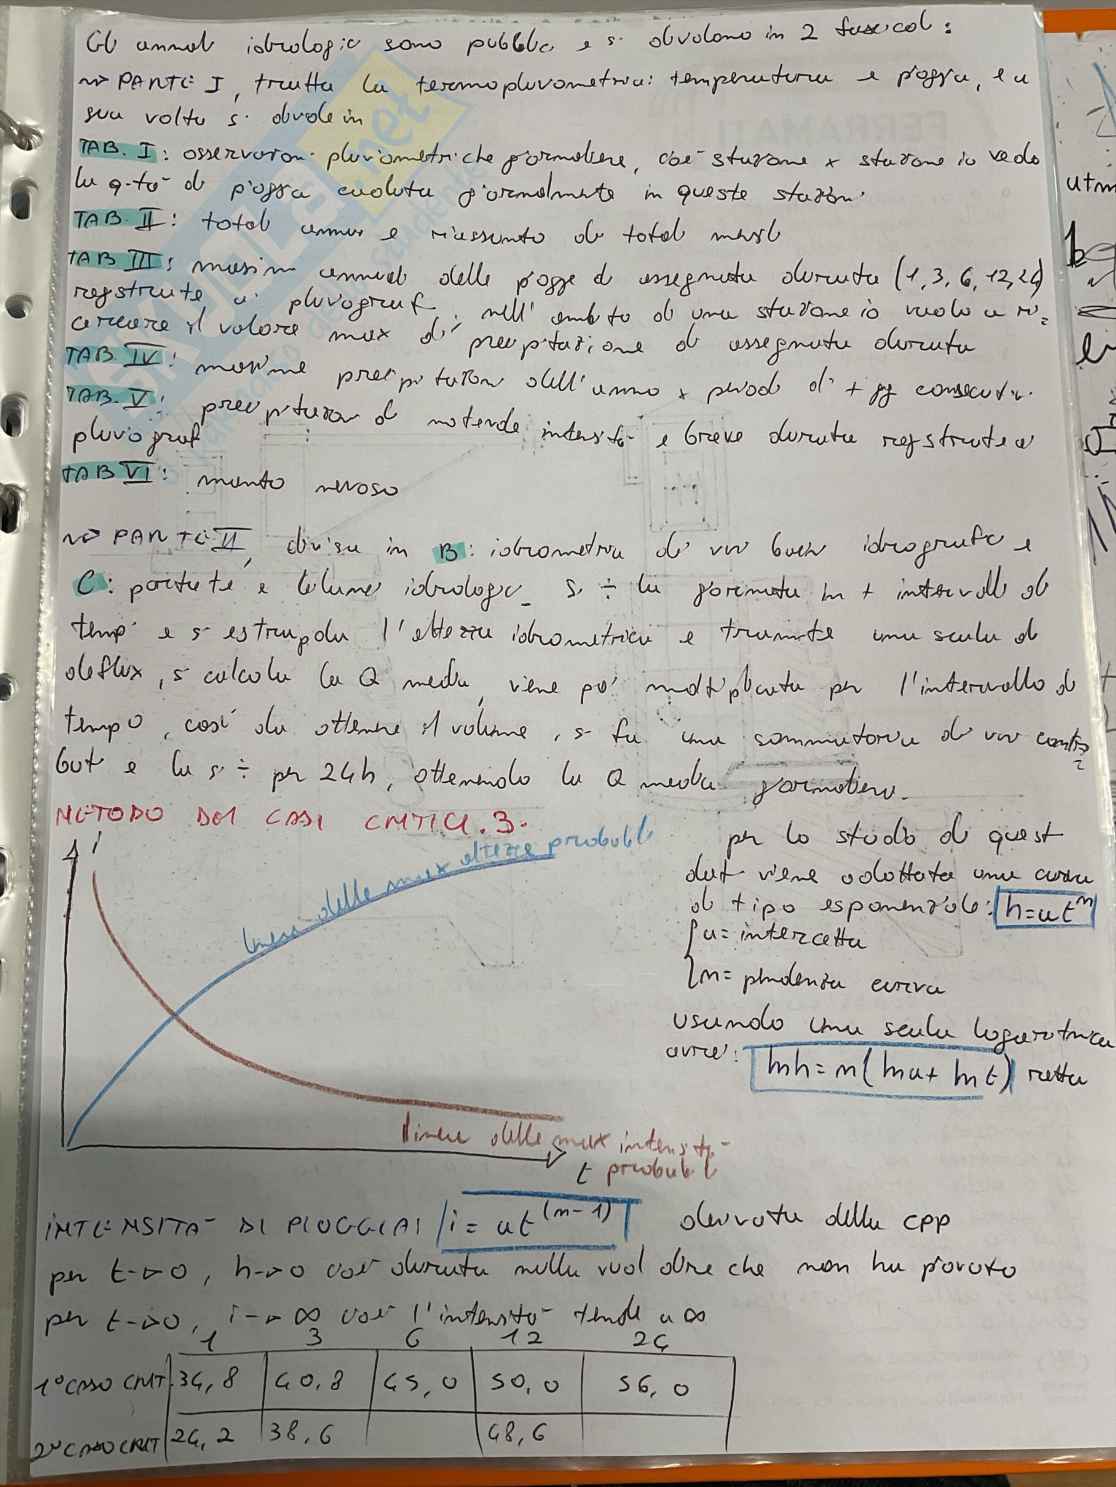 Gli annali idrologici sono pubblici e si dividono in 2 fascicoli:
~> PARTE I, tratta la termopluviometria: temperatura e pioggia, e a
sua volta si divide in
TAB. I: osservazioni pluviometriche giornaliere, cioè stazione x stazione io vedo
la q.tà di pioggia caduta giornalmente in queste stazioni
TAB II: totali annui e riassunto dei totali mensili
TAB III: massimi annuali delle piogge di assegnata durata (1,3,6,12,24)
registrate ai pluviografi, nell'ambito di una stazione io vado a ri=
cercare il valore max di precipitazione di assegnata durata
TAB IV: massime precipitazioni dell'anno x periodi di + gg consecutivi
TAB. V: precipitazioni di notevole intensità e breve durata registrate ai
pluviografi
TAB VI: manto nevoso
~> PARTE II, divisa in B: idrometria dei vari bacini idrografici e
C: portate e bilanci idrologici. Si ÷ la giornata in + intervalli di
tempi e si estrapola l'altezza idrometrica e tramite una scala di
deflux, si calcola la Q media, viene poi moltiplicata per l'intervallo di
tempo, così da ottenere il volume, si fa una sommatoria dei vari contri=
buti e la si ÷ per 24h, ottenendo la Q media giornaliera.
METODO DEI CASI CRITICI.3.
i
linea delle max altezze probabili
per lo studio di questi
dati viene adottata una curva
di tipo esponenziale: h=at^n
{a= intercetta
{n= pendenza curva
usando una scala logaritmica
avrò: lnh=n(lna+lnt) retta
linea delle max intensità
t probabili
INTENSITÀ DI PIOGGIA: i=at^(n-1) derivata della cpp
per t->0, h->0 cioè durata nulla vuol dire che non ha piovuto
per t->0, i->∞ cioè l'intensità tende a ∞
1 3 6 12 24
1° CASO CRIT. 34,8 40,8 45,0 50,0 56,0
2° CASO CRIT 24,2 38,6 48,6